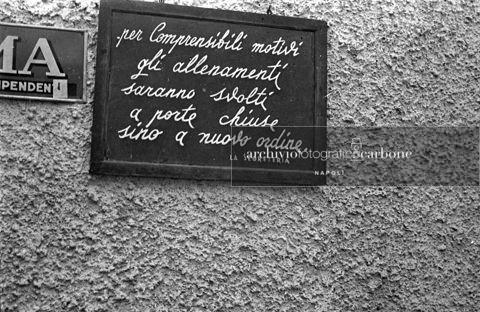 MA
IPENDENT
per Comprensibili motivi
gli allenamenti
saranno svolti
a porte chiuse
sino a nuovo ordine
LA SEGRETERIA
archiviofotograficocarbone
NAPOLI